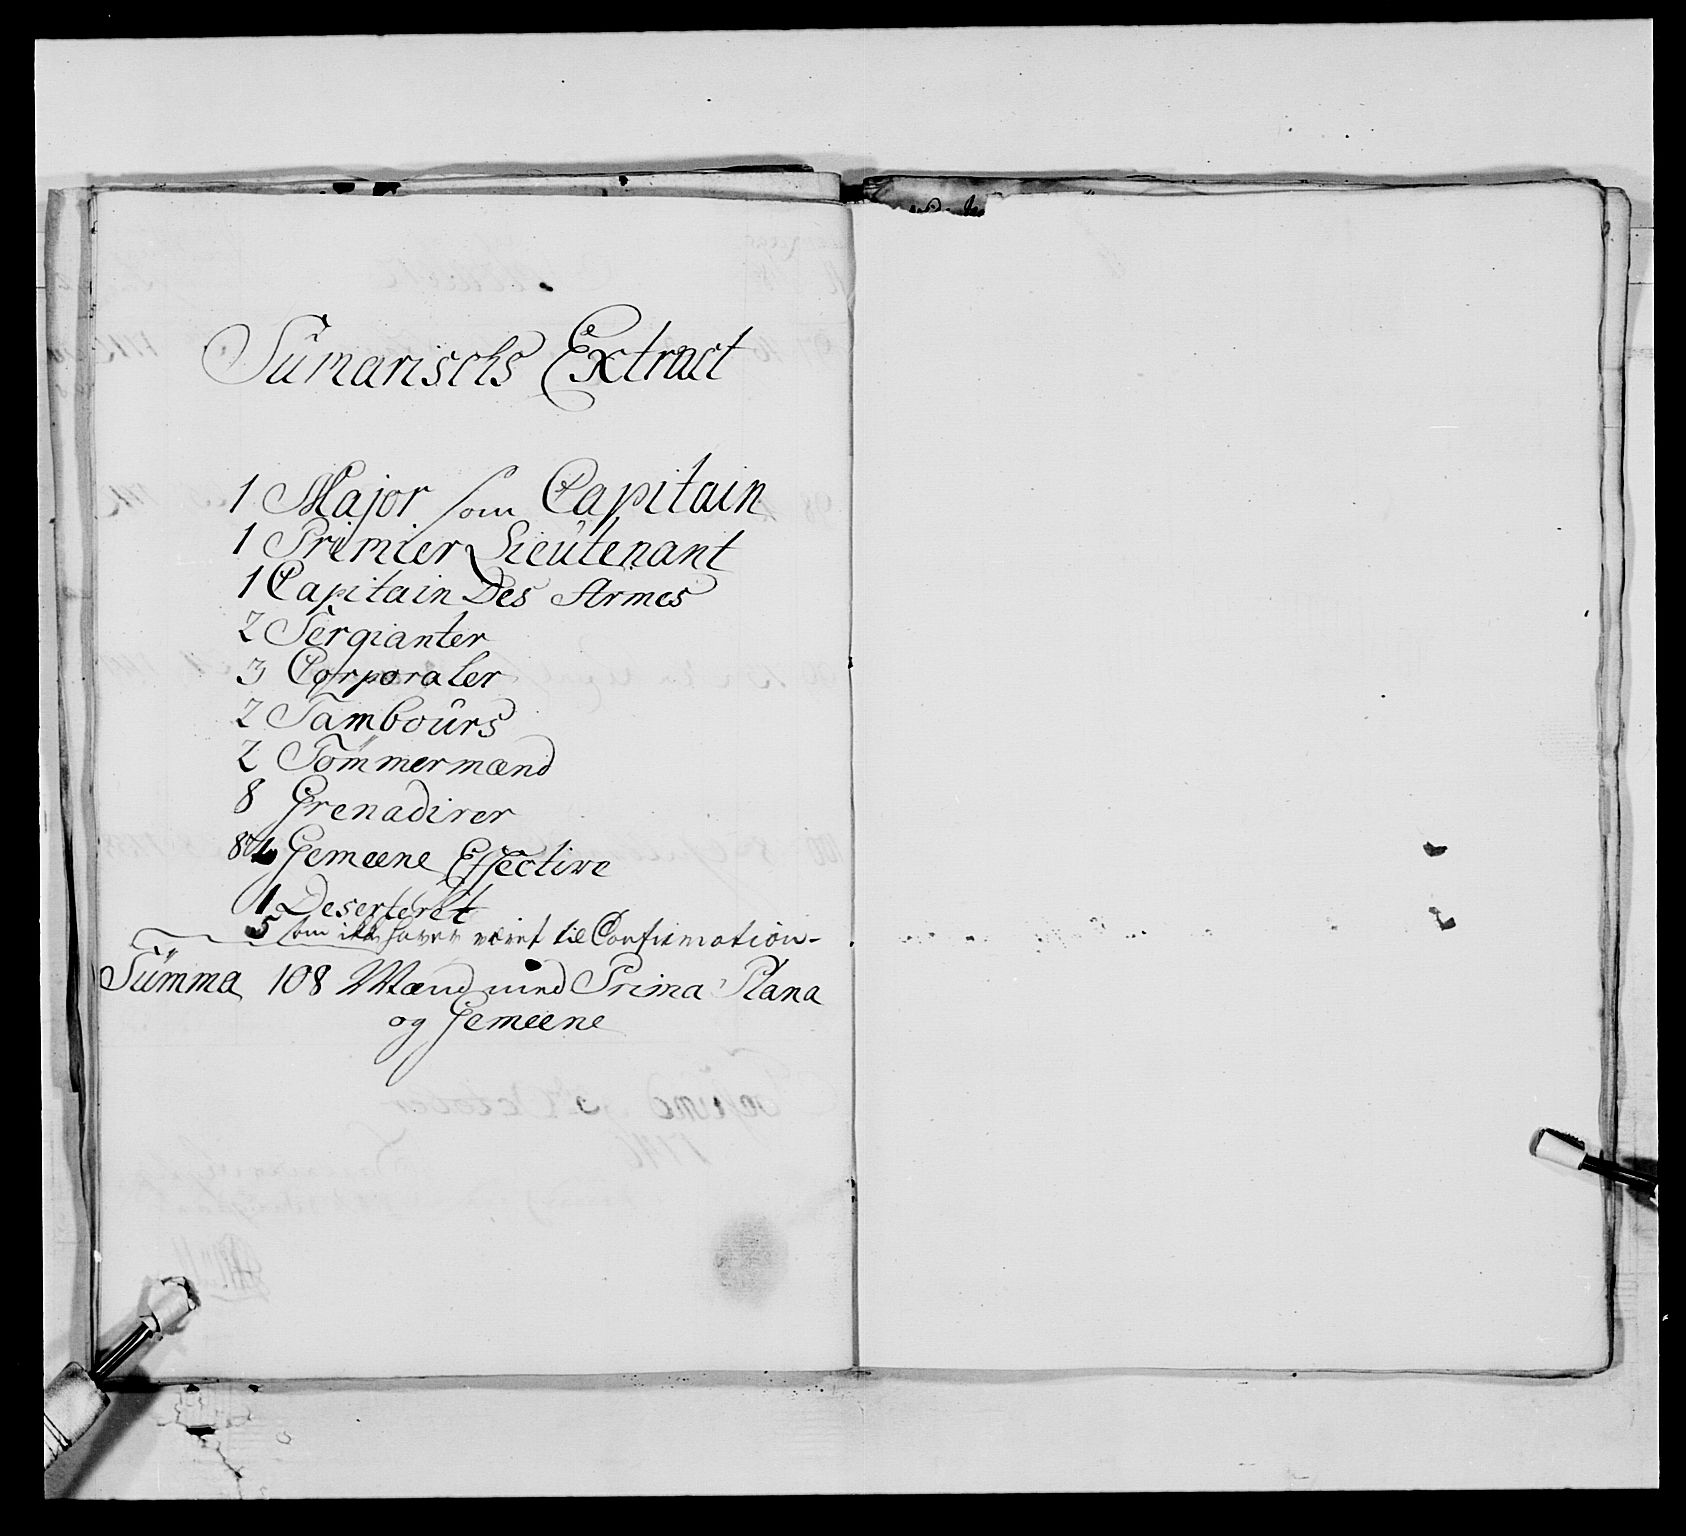 Sumarischs Extract
1 Major som Capitain
1 Primier Lieutenant
1 Capitain Des Armes
2 Sergianter
3 Corporaler
2 Tambours
2 Tømmermænd
8 Grenadirer
Gemeene Effective
1 Deserteret
5 som ikke haver været til Confirmation
Summa 108 Mænd med Prima Plana
og Gemeene